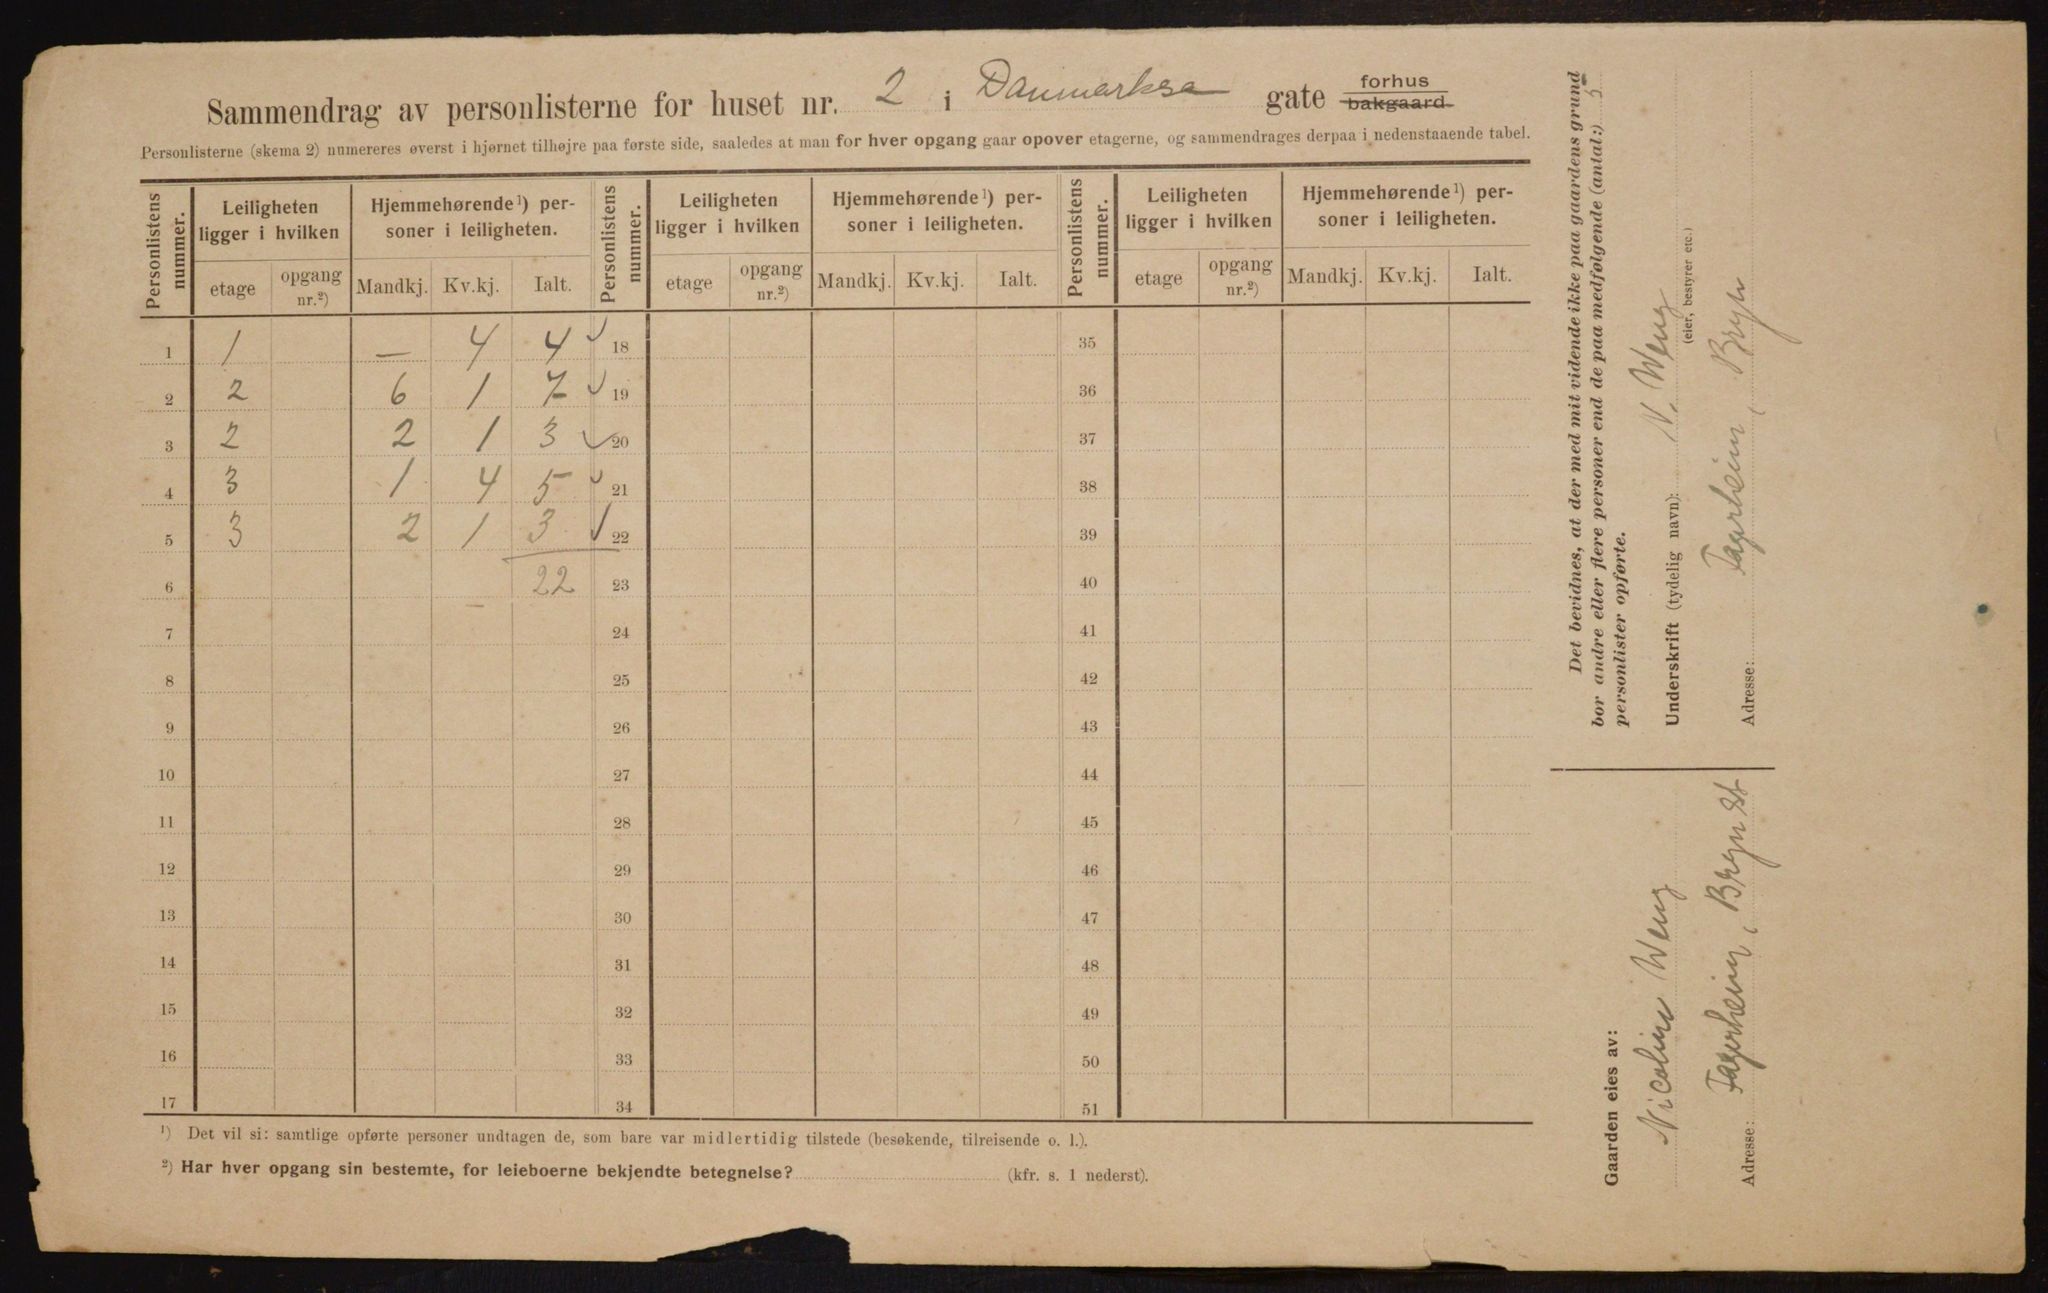 Sammendrag av personlisterne for huset nr. 2 i Danmarksa gate forhus bakgaard.
Personlisterne (skema 2) numereres øverst i hjørnet tilhøjre paa første side, saaledes at man for hver opgang gaar opover etagerne, og sammendrages derpaa i nedenstaaende tabel.
Personlistens nummer. Leiligheten ligger i hvilken Hjemmehørende ¹) personer i leiligheten. Personlistens nummer. Leiligheten ligger i hvilken Hjemmehørende ¹) personer i leiligheten. Personlistens nummer. Leiligheten ligger i hvilken Hjemmehørende ¹) personer i leiligheten.
etage opgang nr.²) Mandkj. Kv.kj. Ialt. etage opgang nr.²) Mandkj. Kv.kj. Ialt. etage opgang nr.²) Mandkj. Kv.kj. Ialt.
1 1 — 4 4 ✓ 18 35
2 2 6 1 7 ✓ 19 36
3 2 2 1 3 ✓ 20 37
4 3 1 4 5 ✓ 21 38
5 3 2 1 3 ✓ 22 39
6 22 23 40
7 24 41
8 25 42
9 26 43
10 27 44
11 28 45
12 29 46
13 30 47
14 31 48
15 32 49
16 33 50
17 34 51
¹) Det vil si: samtlige opførte personer undtagen de, som bare var midlertidig tilstede (besøkende, tilreisende o. l.).
²) Har hver opgang sin bestemte, for leieboerne bekjendte betegnelse? (kfr. s. 1 nederst).
Det bevidnes, at der med mit vidende ikke paa gaardens grund
bor andre eller flere personer end de paa medfølgende (antal:) 5
personlister opførte.
Underskrift (tydelig navn): N. Weng
(eier, bestyrer etc.)
Adresse: Fagerheim, Bryn
Gaarden eies av:
Nicoline Weng
Adresse: Fagerheim, Bryn St